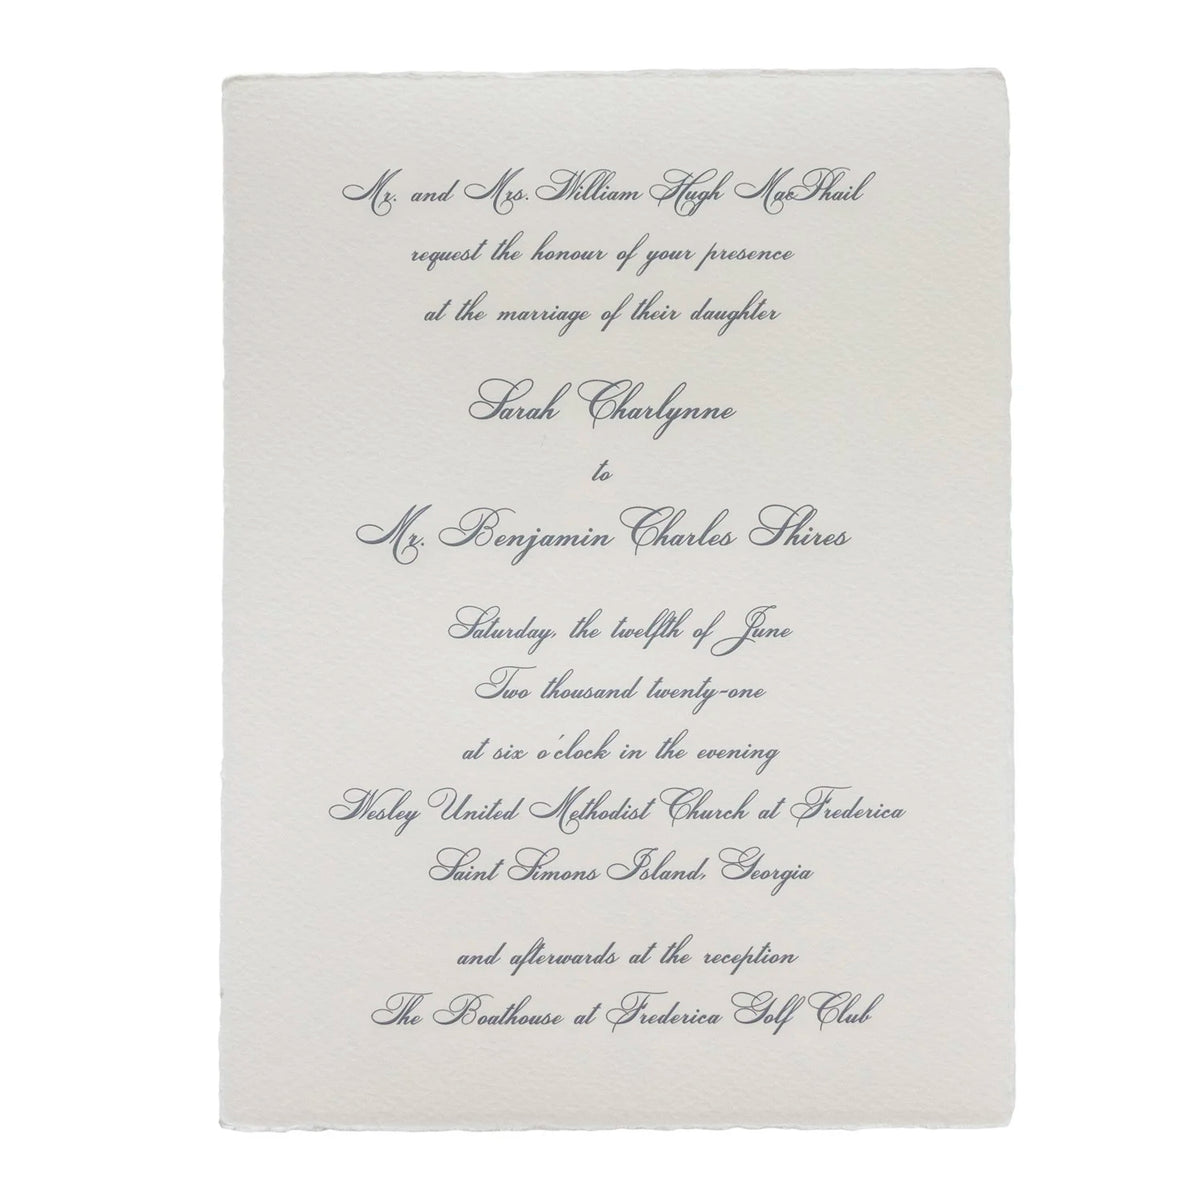 Mr. and Mrs. William Hugh MacPhail
request the honour of your presence
at the marriage of their daughter
Sarah Charlynne
to
Mr. Benjamin Charles Shires
Saturday, the twelfth of June
Two thousand twenty-one
at six o'clock in the evening
Wesley United Methodist Church at Frederica
Saint Simons Island, Georgia
and afterwards at the reception
The Boathouse at Frederica Golf Club